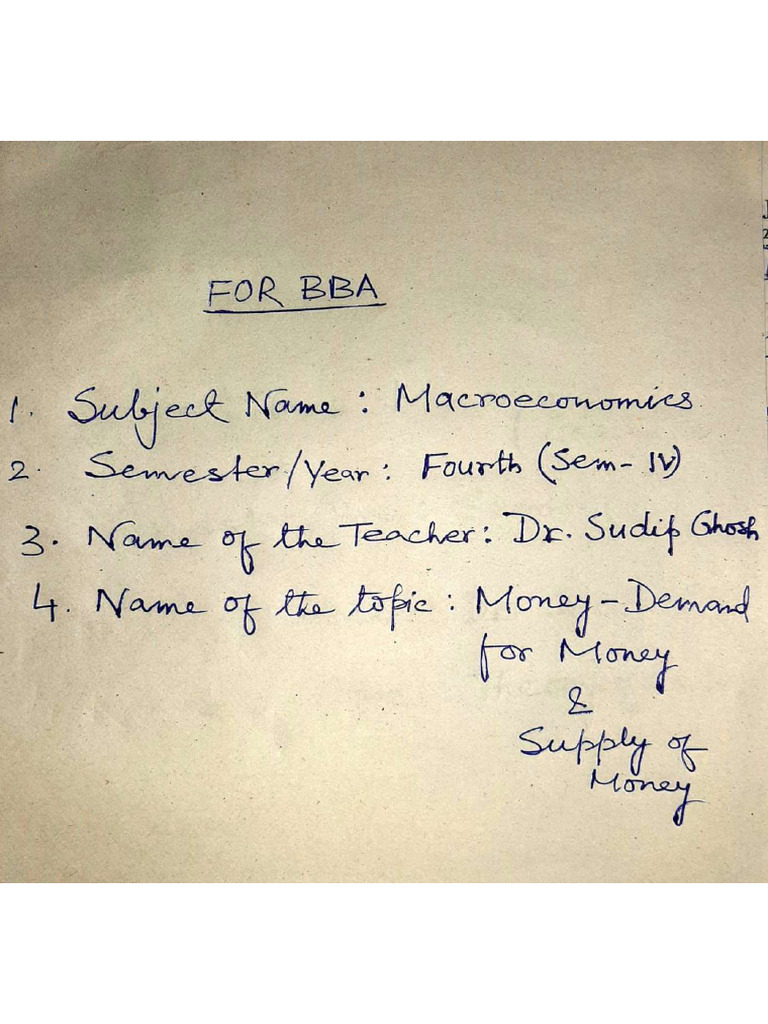 FOR BBA
1. Subject Name : Macroeconomics
2. Semester/Year : Fourth (Sem-IV)
3. Name of the Teacher : Dr. Sudip Ghosh
4. Name of the topic : Money-Demand
for Money
&
Supply of
Money